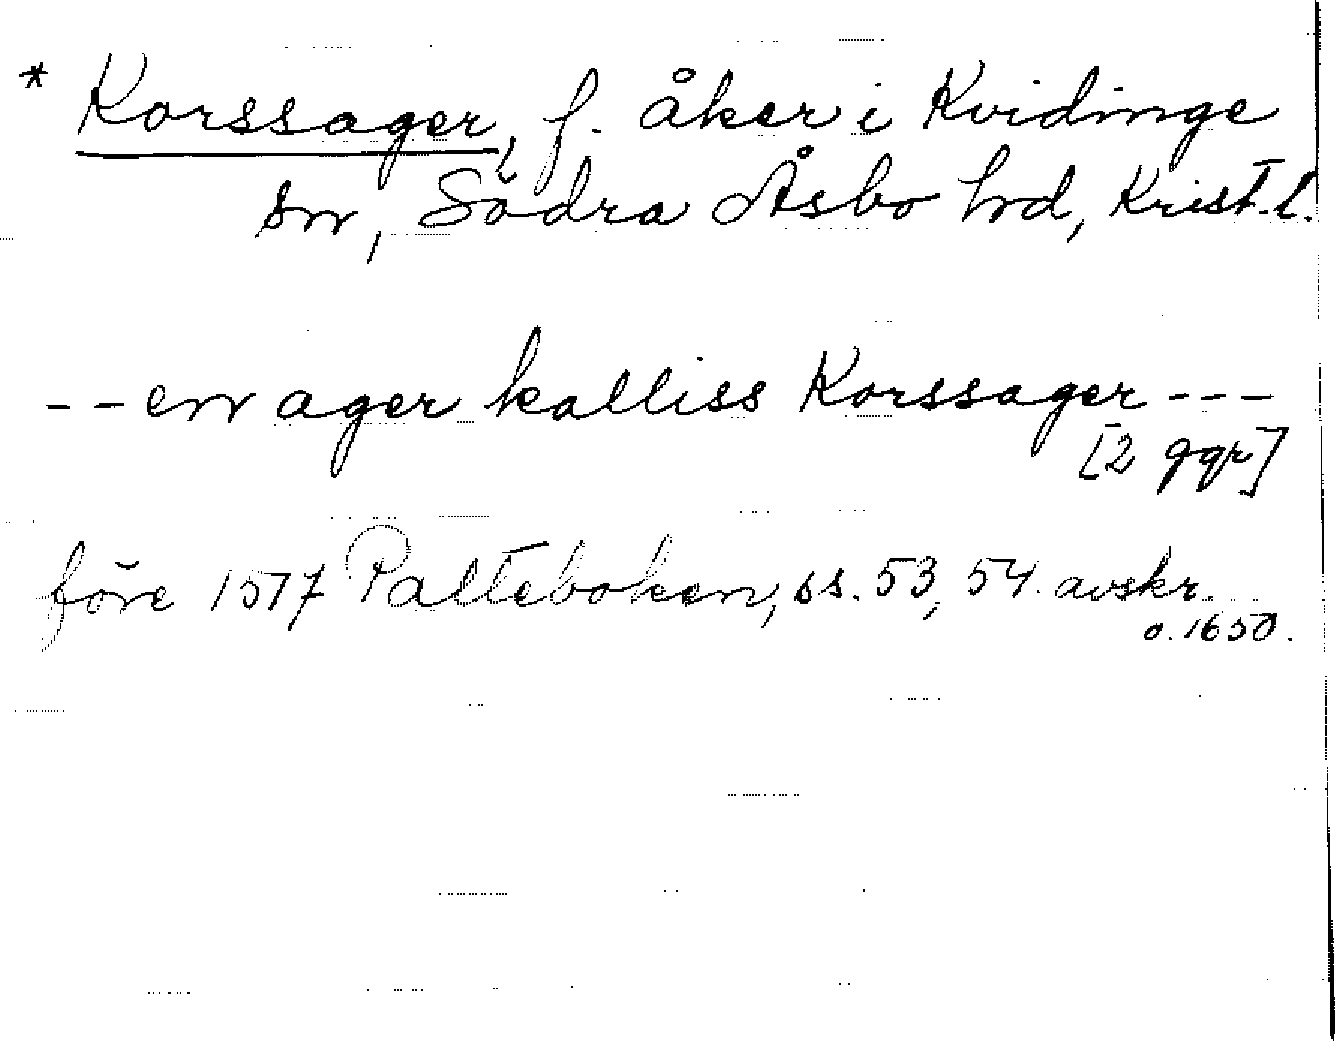 * Korssager, f. åker i Kvidinge
sn, Södra Åsbo hd, Krist. l.
-- en ager kalliss Korssager ---
[2 ggr]
före 1577 Palteboken, ss. 53, 54. avskr.
o. 1650.